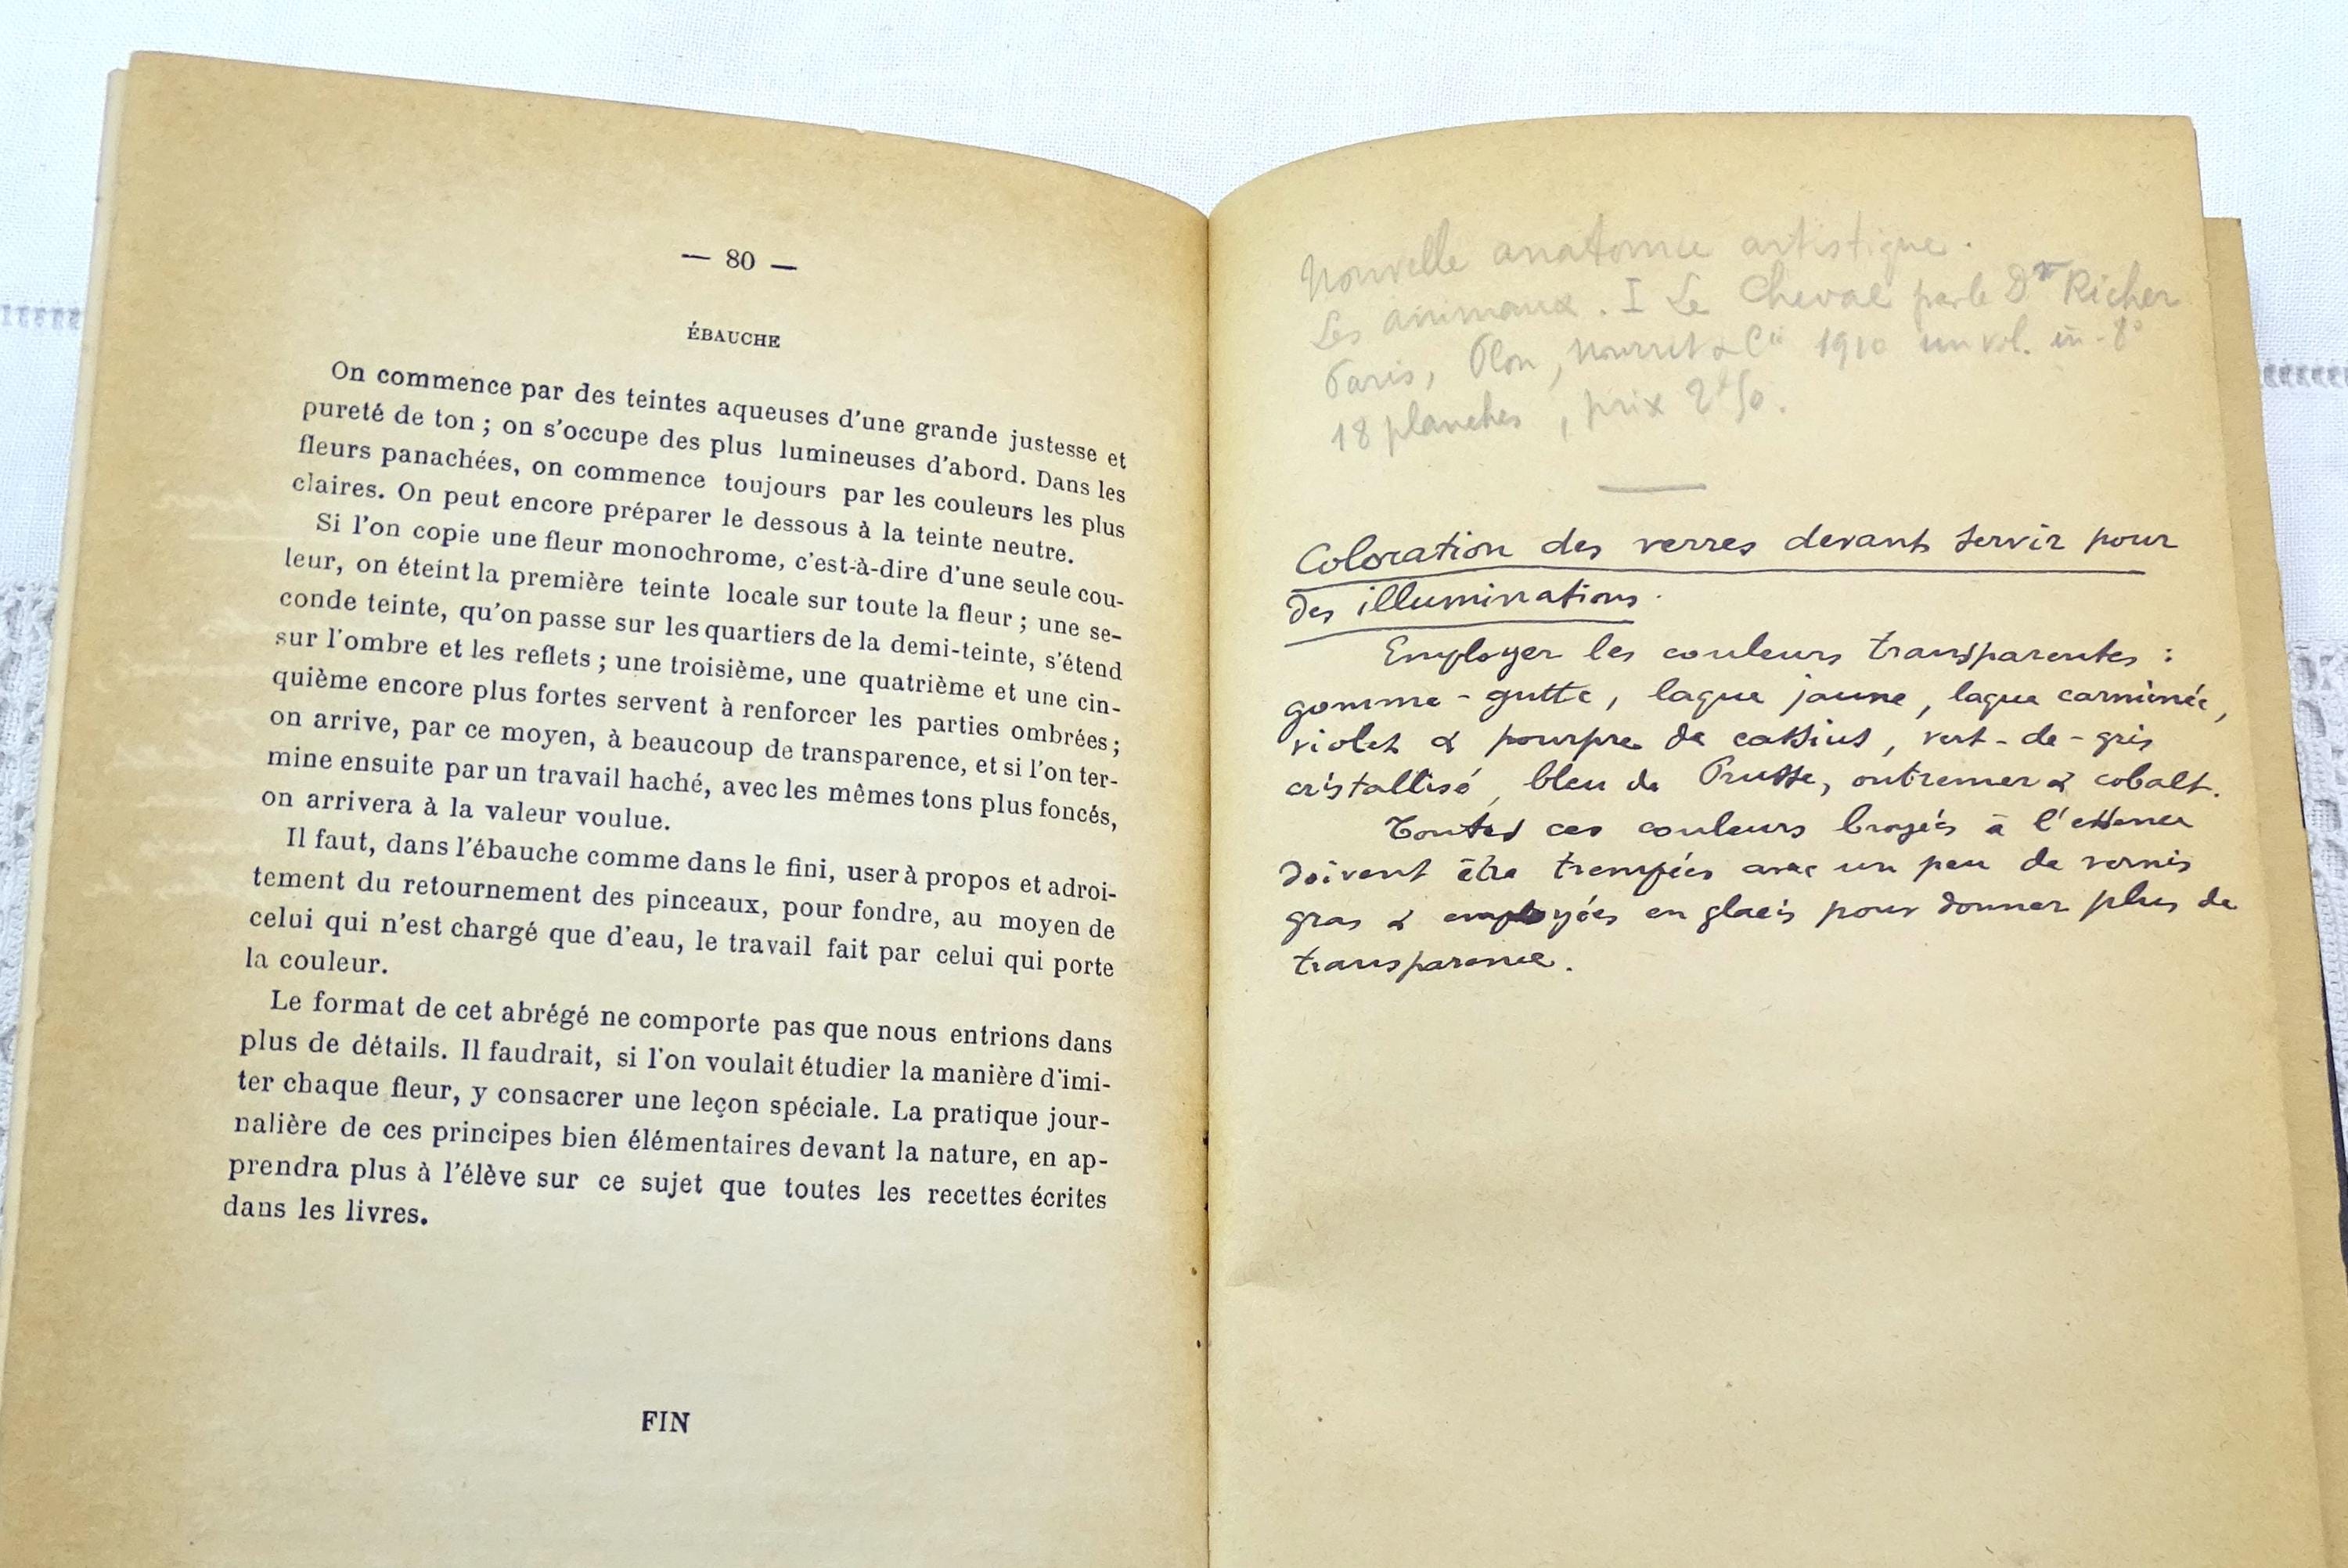 — 80 —
ÉBAUCHE
On commence par des teintes aqueuses d'une grande justesse et
pureté de ton ; on s'occupe des plus lumineuses d'abord. Dans les
fleurs panachées, on commence toujours par les couleurs les plus
claires. On peut encore préparer le dessous à la teinte neutre.
Si l'on copie une fleur monochrome, c'est-à-dire d'une seule cou-
leur, on éteint la première teinte locale sur toute la fleur ; une se-
conde teinte, qu'on passe sur les quartiers de la demi-teinte, s'étend
sur l'ombre et les reflets ; une troisième, une quatrième et une cin-
quième encore plus fortes servent à renforcer les parties ombrées ;
on arrive, par ce moyen, à beaucoup de transparence, et si l'on ter-
mine ensuite par un travail haché, avec les mêmes tons plus foncés,
on arrivera à la valeur voulue.
Il faut, dans l'ébauche comme dans le fini, user à propos et adroi-
tement du retournement des pinceaux, pour fondre, au moyen de
celui qui n'est chargé que d'eau, le travail fait par celui qui porte
la couleur.
Le format de cet abrégé ne comporte pas que nous entrions dans
plus de détails. Il faudrait, si l'on voulait étudier la manière d'imi-
ter chaque fleur, y consacrer une leçon spéciale. La pratique jour-
nalière de ces principes bien élémentaires devant la nature, en ap-
prendra plus à l'élève sur ce sujet que toutes les recettes écrites
dans les livres.
FIN
Nouvelle anatomie artistique.
Les animaux. I Le Cheval par le Dr Richer
Paris, Plon, Nourrit & Cie 1910 un vol. in-8°
18 planches, prix 2f50.
Coloration des verres devant servir pour
des illuminations.
Employer les couleurs transparentes :
gomme-gutte, laque jaune, laque carminée,
violet & pourpre de cassius, vert-de-gris
cristallisé, bleu de Prusse, outremer & cobalt.
Toutes ces couleurs broyées à l'essence
doivent être trempées avec un peu de vernis
gras & employées en glacis pour donner plus de
transparence.